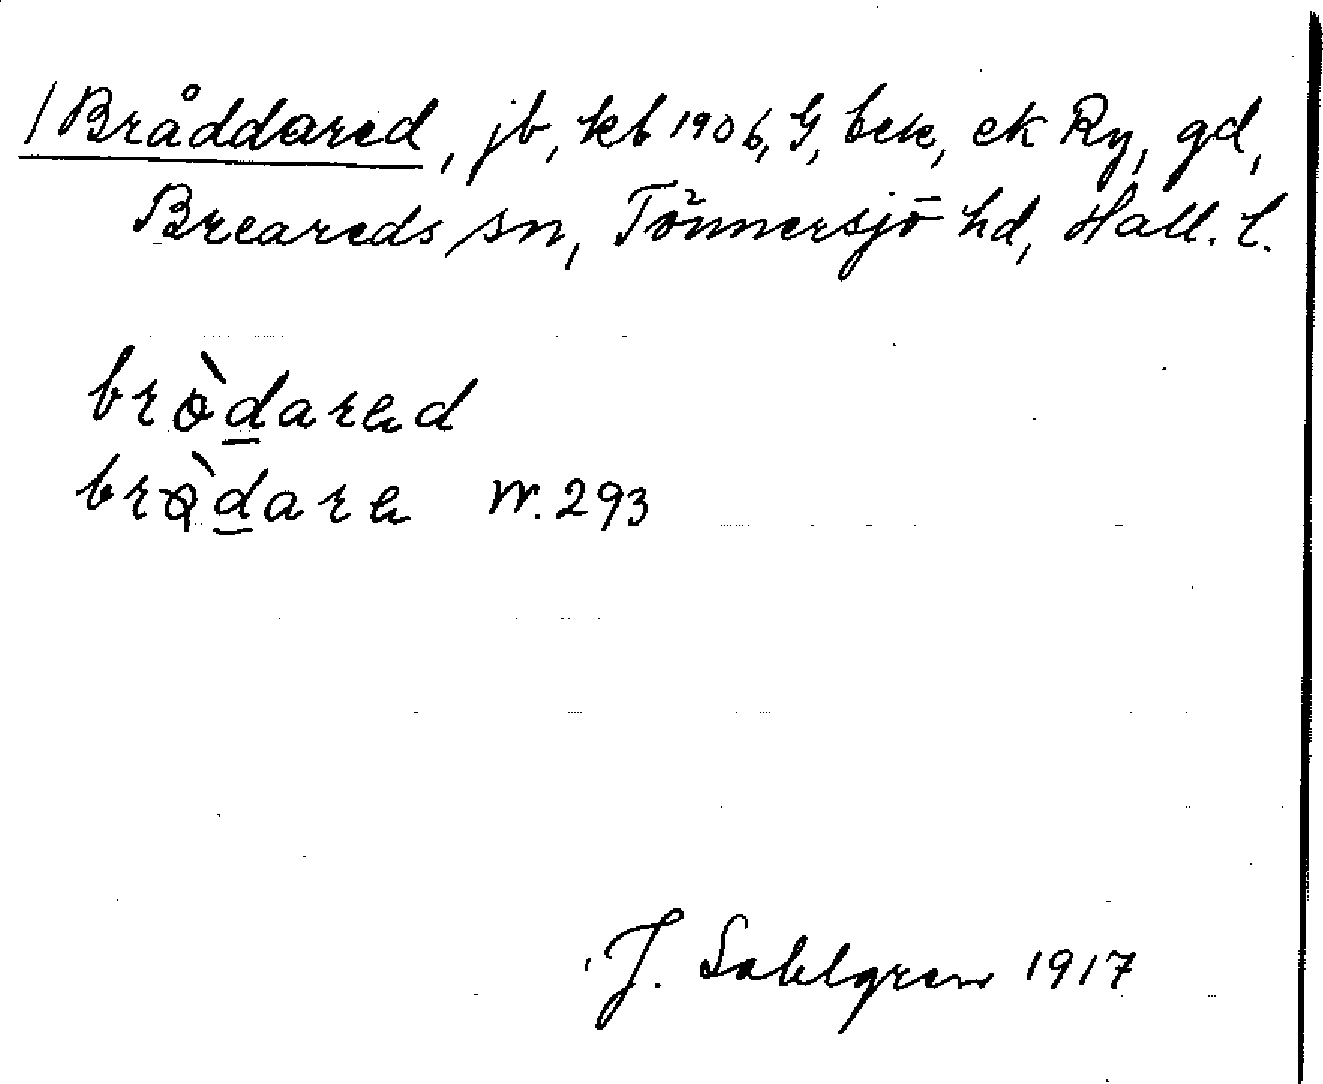 / Bråddared, jb, kb 1906, G, bek, ek Ry, gd,
Breareds sn, Tönnersjö hd, Hall. l.
bròdared
bròdare W. 293
J. Sahlgren 1917